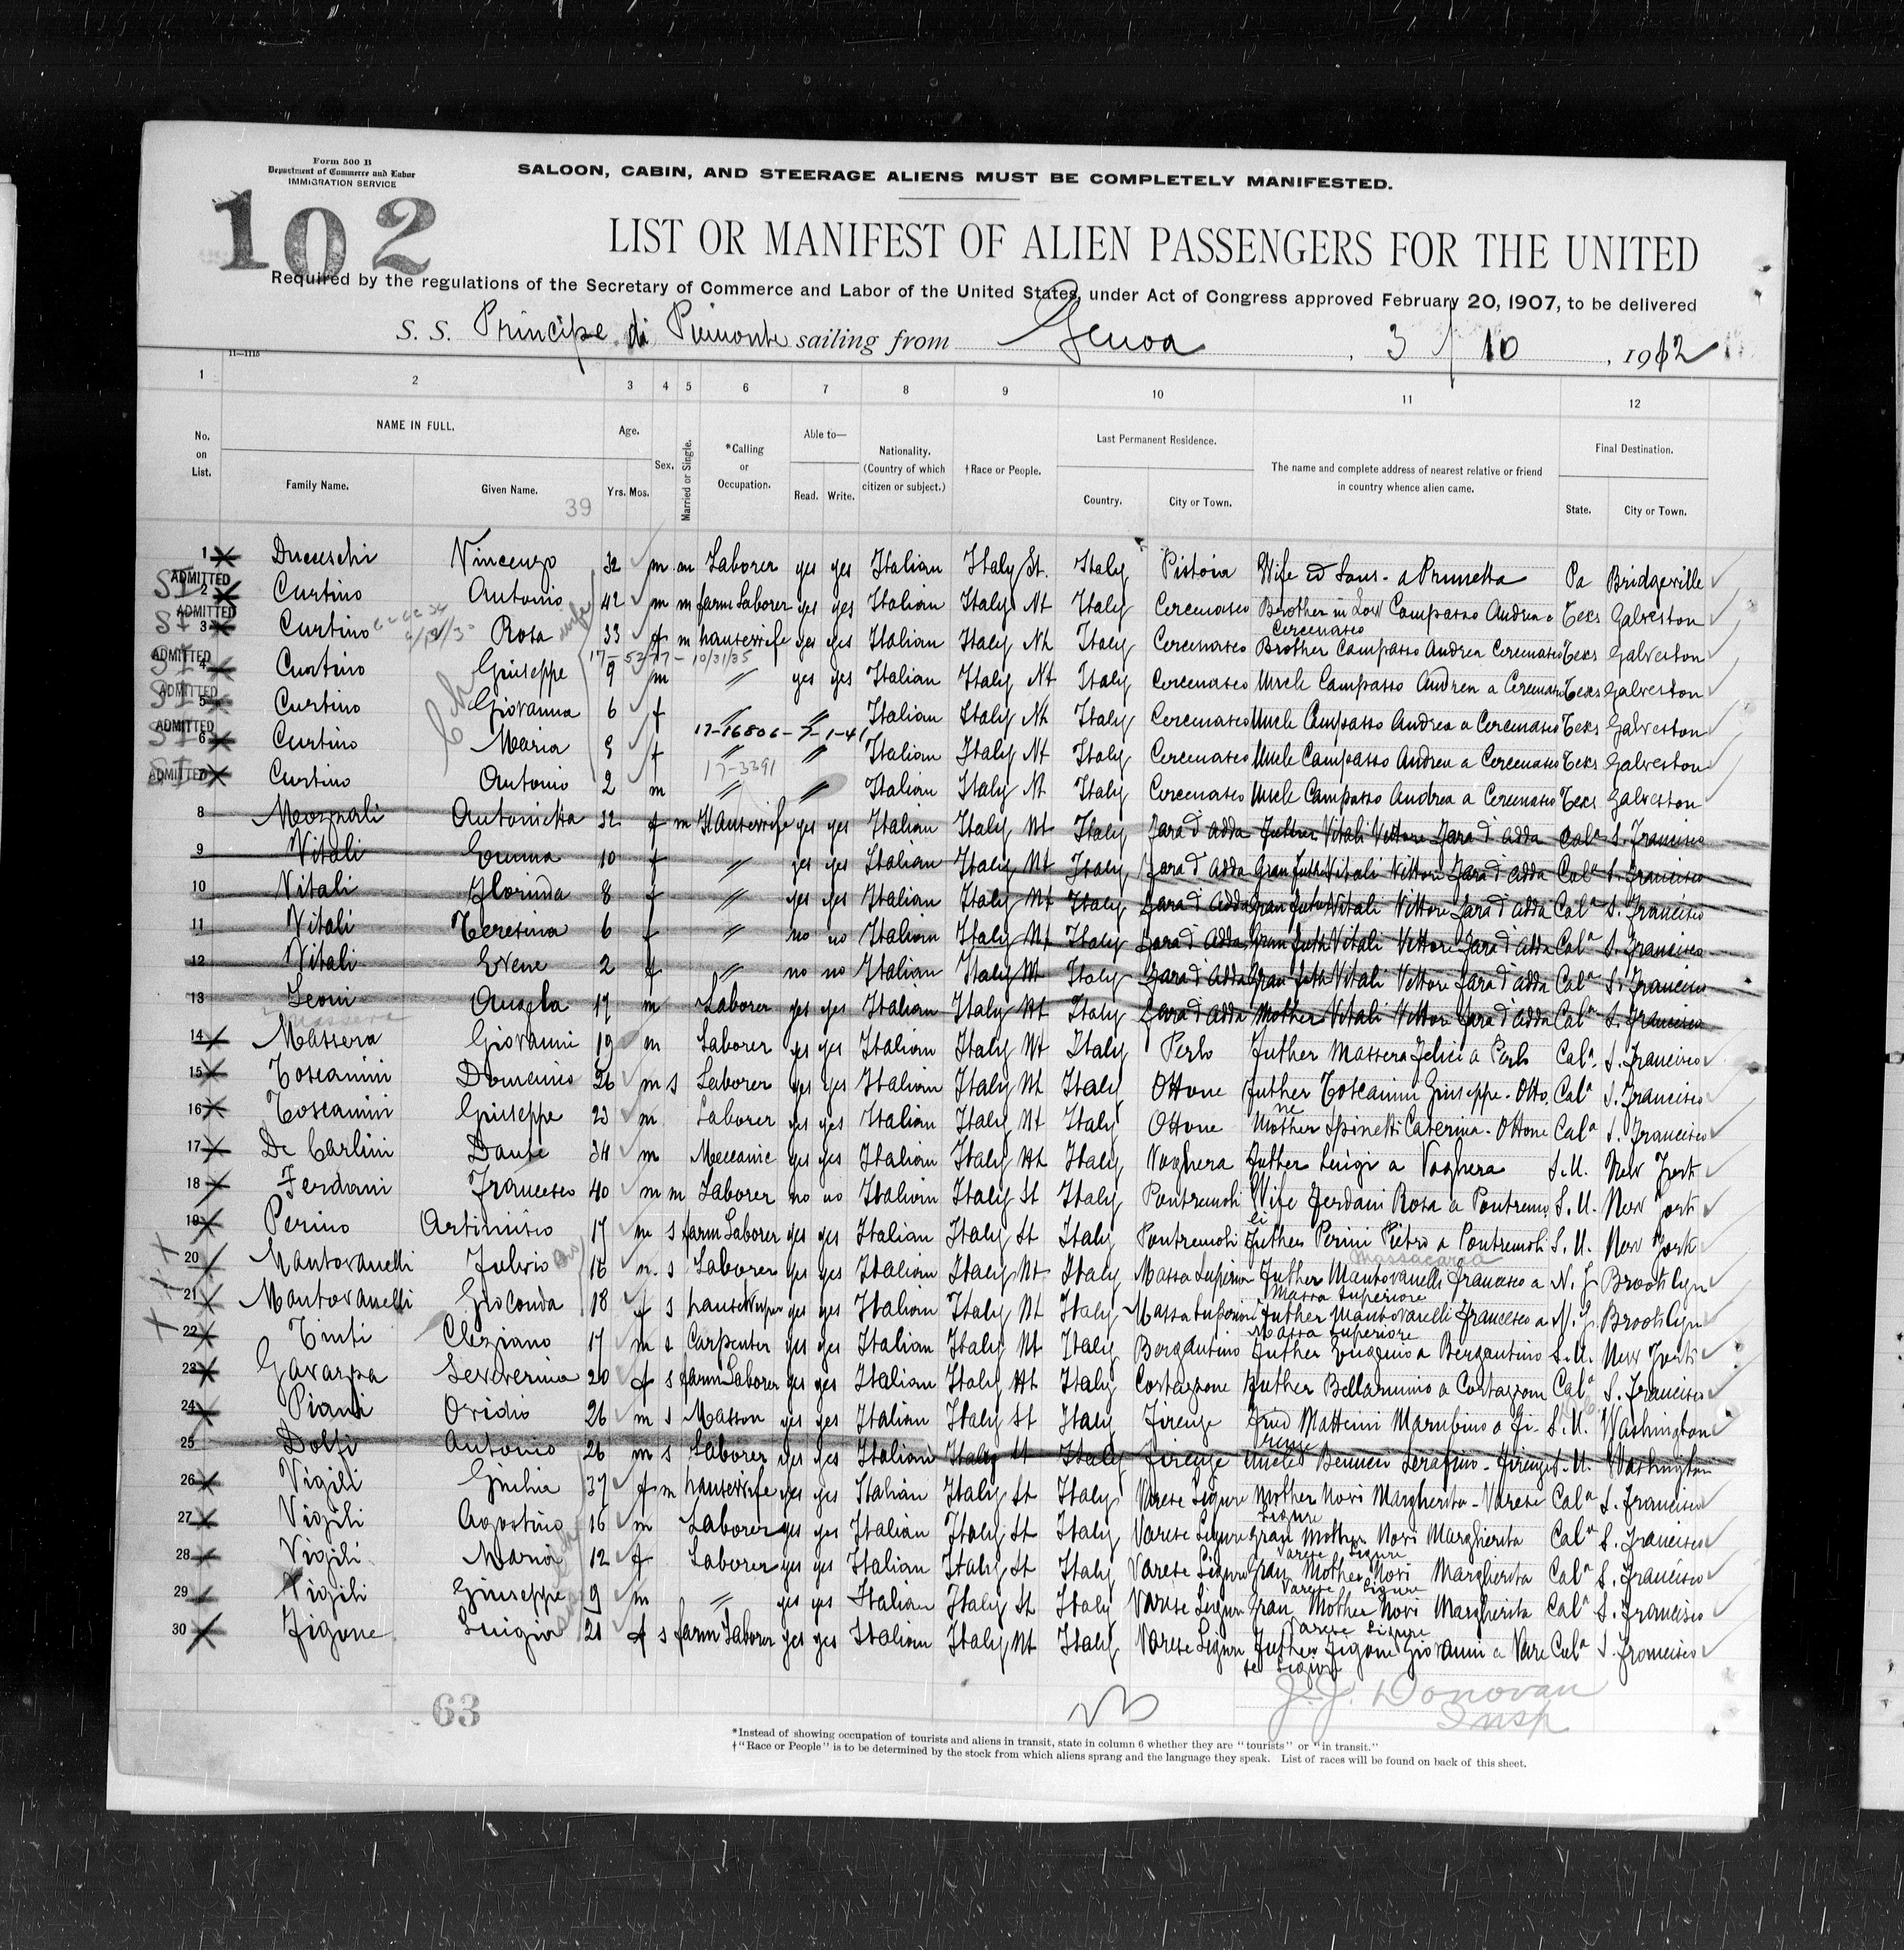 Form 500 B
Department of Commerce and Labor
IMMIGRATION SERVICE
SALOON, CABIN, AND STEERAGE ALIENS MUST BE COMPLETELY MANIFESTED.
102
LIST OR MANIFEST OF ALIEN PASSENGERS FOR THE UNITED
Required by the regulations of the Secretary of Commerce and Labor of the United States, under Act of Congress approved February 20, 1907, to be delivered
S. S. Principe di Piemonte sailing from Genoa, 3 / 10, 1912
11—1115
1 2 3 4 5 6 7 8 9 10 11 12
No. on List. NAME IN FULL. Family Name. Given Name. Age. Yrs. Mos. Sex. Married or Single. *Calling or Occupation. Able to— Read. Write. Nationality. (Country of which citizen or subject.) †Race or People. Last Permanent Residence. Country. City or Town. The name and complete address of nearest relative or friend in country whence alien came. Final Destination. State. City or Town.
39
1 Vincenzo 32 m m Laborer yes yes Italian Italy St. Italy Pistoia Wife a Prunetta Pa Bridgeville
SI ADMITTED 2 Curtino Antonio 42 m m farm Laborer yes yes Italian Italy Nt Italy Cercenasco Brother in Low Campasso Andrea a Teks Galveston
Cercenasco
SI ADMITTED 3 Curtino Rosa wife 33 f m hausewife yes yes Italian Italy Nt Italy Cercenasco Brother Campasso Andrea Cercenasco Teks Galveston
10/31/35
SI ADMITTED 4 Curtino Giuseppe 9 m " yes yes Italian Italy Nt Italy Cercenasco Uncle Campasso Andrea a Cercenasco Teks Galveston
SI ADMITTED 5 Curtino Giovanna 6 f " " Italian Italy Nt Italy Cercenasco Uncle Campasso Andrea a Cercenasco Teks Galveston
17-16806-7-1-41
SI ADMITTED 6 Curtino Maria f " " Italian Italy Nt Italy Cercenasco Uncle Campasso Andrea a Cercenasco Teks Galveston
17-3391
SI ADMITTED 7 Curtino Antonio 2 m " " Italian Italy Nt Italy Cercenasco Uncle Campasso Andrea a Cercenasco Teks Galveston
8 Antonietta 32 f m Hausewife yes yes Italian Italy Nt Italy Fara d'Adda Futher Vitali Vittore Fara d'Adda Cala S. Francisco
9 Vitali Emma 10 f " yes yes Italian Italy Nt Italy Fara d'Adda Gran Futher Vitali Vittore Fara d'Adda Cala S. Francisco
10 Vitali Florinda 8 f " yes yes Italian Italy Nt Italy Fara d'Adda Gran Futher Vitali Vittore Fara d'Adda Cala S. Francisco
11 Vitali Teresina 6 f " no no Italian Italy Nt Italy Fara d'Adda Gran Futh Vitali Vittore Fara d'Adda Cala S. Francisco
12 Vitali 2 f " no no Italian Italy Nt Italy Fara d'Adda Gran Futh Vitali Vittore Fara d'Adda Cala S. Francisco
13 Leoni 17 m Laborer yes yes Italian Italy Nt Italy Fara d'Adda Mother Vitali Vittore Fara d'Adda Cala S. Francisco
Massera
14 Massera Giovanni 19 m Laborer yes yes Italian Italy Nt Italy Perlo Futher Massera Felici a Perlo Cala S. Francisco
15 Toscanini Domenico 26 m s Laborer yes yes Italian Italy Nt Italy Ottone Futher Toscanini Giuseppe - Otto Cala S. Francisco
ne
16 Toscanini Giuseppe 23 m Laborer yes yes Italian Italy Nt Italy Ottone Mother Spinetti Caterina - Ottone Cala S. Francisco
17 De Carlini Dante 34 m Meccanic yes yes Italian Italy Nt Italy Voghera Futher Luigi a Voghera S.U. New York
18 Ferdani Francesco 40 m m Laborer no no Italian Italy St Italy Pontremoli Wife Ferdani Rosa a Pontremo S.U. New York
li
19 Perino 17 m s farm Laborer yes yes Italian Italy St Italy Pontremoli Futher Perini Pietro a Pontremoli S.U. New York
20 Mantovanelli Fulvio 16 m. s Laborer yes yes Italian Italy Nt Italy Massa Superior Futher Mantovanelli Francesco a N.J. Brooklyn
Massa Superiore
21 Mantovanelli Gioconda 18 f s yes yes Italian Italy Nt Italy Massa Superiore Futher Mantovanelli Francesco a N.J. Brooklyn
Massa Superiore
22 Tinti 17 m s Carpenter yes yes Italian Italy Nt Italy Bergantino Futher Eugenio a Bergantino S.U. New York
23 Severina 20 f s farm Laborer yes yes Italian Italy Nt Italy Futher Bellarmino a Cala S. Francisco
24 Piani Ovidio 26 m s Masson yes yes Italian Italy St Italy Firenze Matteini a Fi- S.U. Washington
renze
25 Dolfi Antonio 26 m s Laborer yes yes Italian Italy St Italy Firenze Uncle Serafino - Firenze S.U. Washington
26 Vigili Giulia 37 f m hausewife yes yes Italian Italy St Italy Varese Ligure Mother Novi Margherita - Varese Cala S. Francisco
Ligure
27 Vigili Agostino 16 m Laborer yes yes Italian Italy St Italy Varese Ligure Gran Mother Novi Margherita Cala S. Francisco
Varese Ligure
28 Vigili Maria 12 f Laborer yes yes Italian Italy St Italy Varese Ligure Gran Mother Novi Margherita Cala S. Francisco
Varese Ligure
29 Vigili Giuseppe 9 m " yes yes Italian Italy St Italy Varese Ligure Gran Mother Novi Margherita Cala S. Francisco
Varese Ligure
30 Figone Luigia 21 f s farm Laborer yes yes Italian Italy Nt Italy Varese Ligure Futher Figone Giovanni a Vare Cala S. Francisco
se Ligure
63
J. J. Donovan
Insp
*Instead of showing occupation of tourists and aliens in transit, state in column 6 whether they are "tourists" or "in transit."
†"Race or People" is to be determined by the stock from which aliens sprang and the language they speak. List of races will be found on back of this sheet.